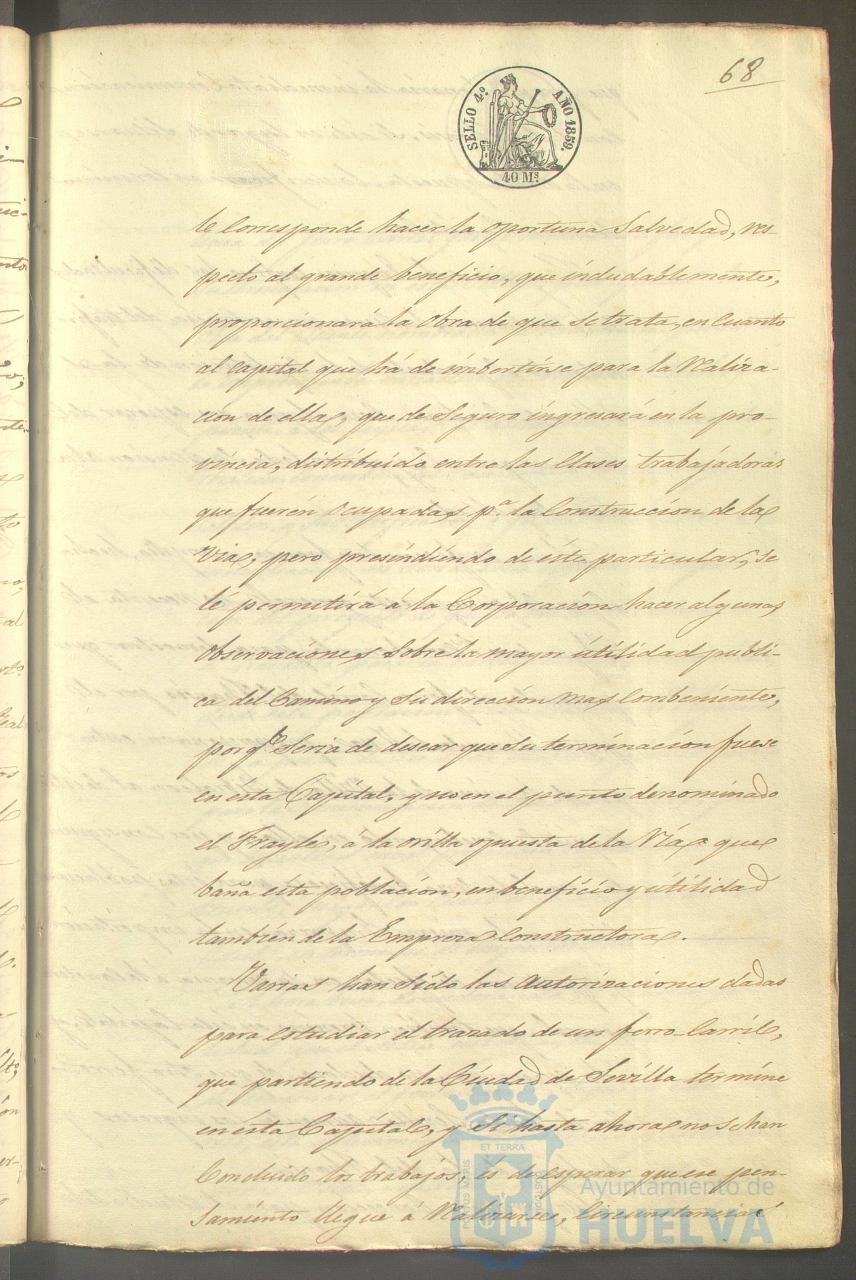 68
SELLO 4º AÑO 1859.
40 Mˢ
le corresponde hacer la oportuna Salvedad, res-
pecto al grande beneficio, que indudablemente,
proporcionará la obra de que se trata, en cuanto
al capital que há de imbertirse para la Realiza-
cion de ella, que de Seguro ingresará en la pro-
vincia, distribuido entre las Clases trabajadoras
que fueren ocupadas pª. la Construccion de la
Via, pero presindiendo de éste particular, se
lé permitira á la Corporacion hacer algunas
observaciones sobre la mayor útilidad publi-
ca del Camino y su direccion mas combeniente,
por qᵉ Seria de desear que su terminacion fuese
en ésta Capital, y no en el punto denominado
el Frayle, á la orilla opuesta de la Ría que
baña ésta poblacion, en beneficio y útilidad
tambien de la Empreza Constructora.
Varias han sido las autorizaciones dadas
para estudiar el trazado de un ferro-Carril,
que partiendo de la Ciudad de Sevilla termine
en ésta Capital, y si hasta ahora no se han
Concluido los trabajos, es de esperar que ese pen-
samiento llegue á Realizarse, Circunstancia
ET TERRA
Ayuntamiento de
HUELVA